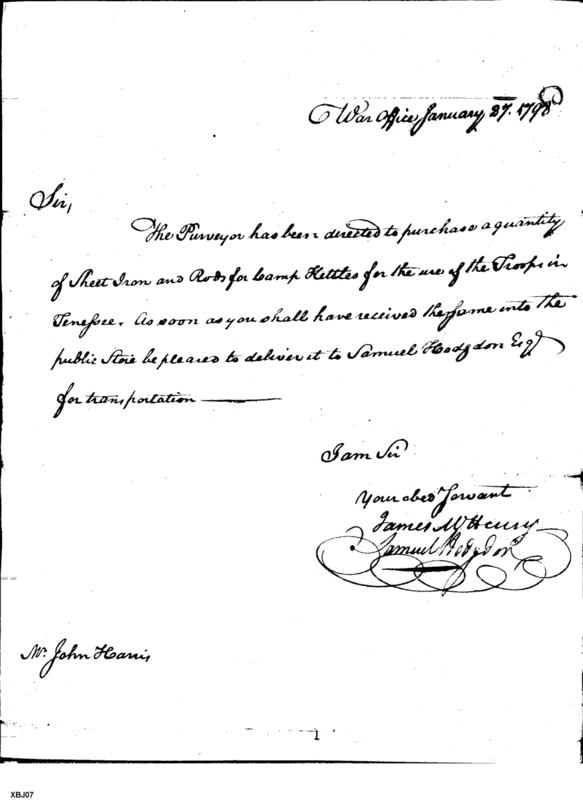 War Office January 27. 1798
Sir,
The Purveyor has been directed to purchase a quantity
of Sheet Iron and Rods for Camp Kettles for the use of the Troops in
Tenessee. As soon as you shall have received the same into the
public Store be pleased to deliver it to Samuel Hodgdon Esqr
for transportation
I am Sir
Your obedt Servant
James McHenry
Samuel Hodgdon
Mr. John Harris
1
XBJ07